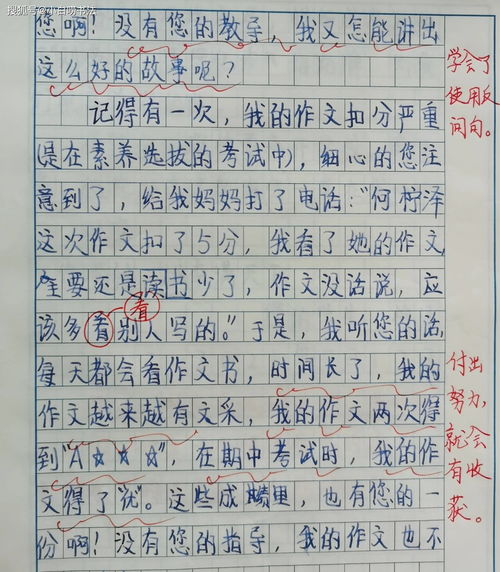 搜狐号@小白说书法
您啊！没有您的教导，我又怎能讲出
这么好的故事呢？
学会了
使用反
问句。
记得有一次，我的作文扣分严重
(是在素养选拔的考试中)，细心的您注
意到了，给我妈妈打了电话："何柠泽
这次作文扣了5分，我看了她的作文，
主要还是读书少了，作文没话说，应
看
该多看别人写的。"于是，我听您的话，
每天都会看作文书，时间长了，我的
作文越来越有文采，我的作文两次得
到"A☆☆☆"，在期中考试时，我的作
文得了"优"。这些成绩里，也有您的一
份啊！没有您的指导，我的作文也不
付出
努力，
就会
有收
获。